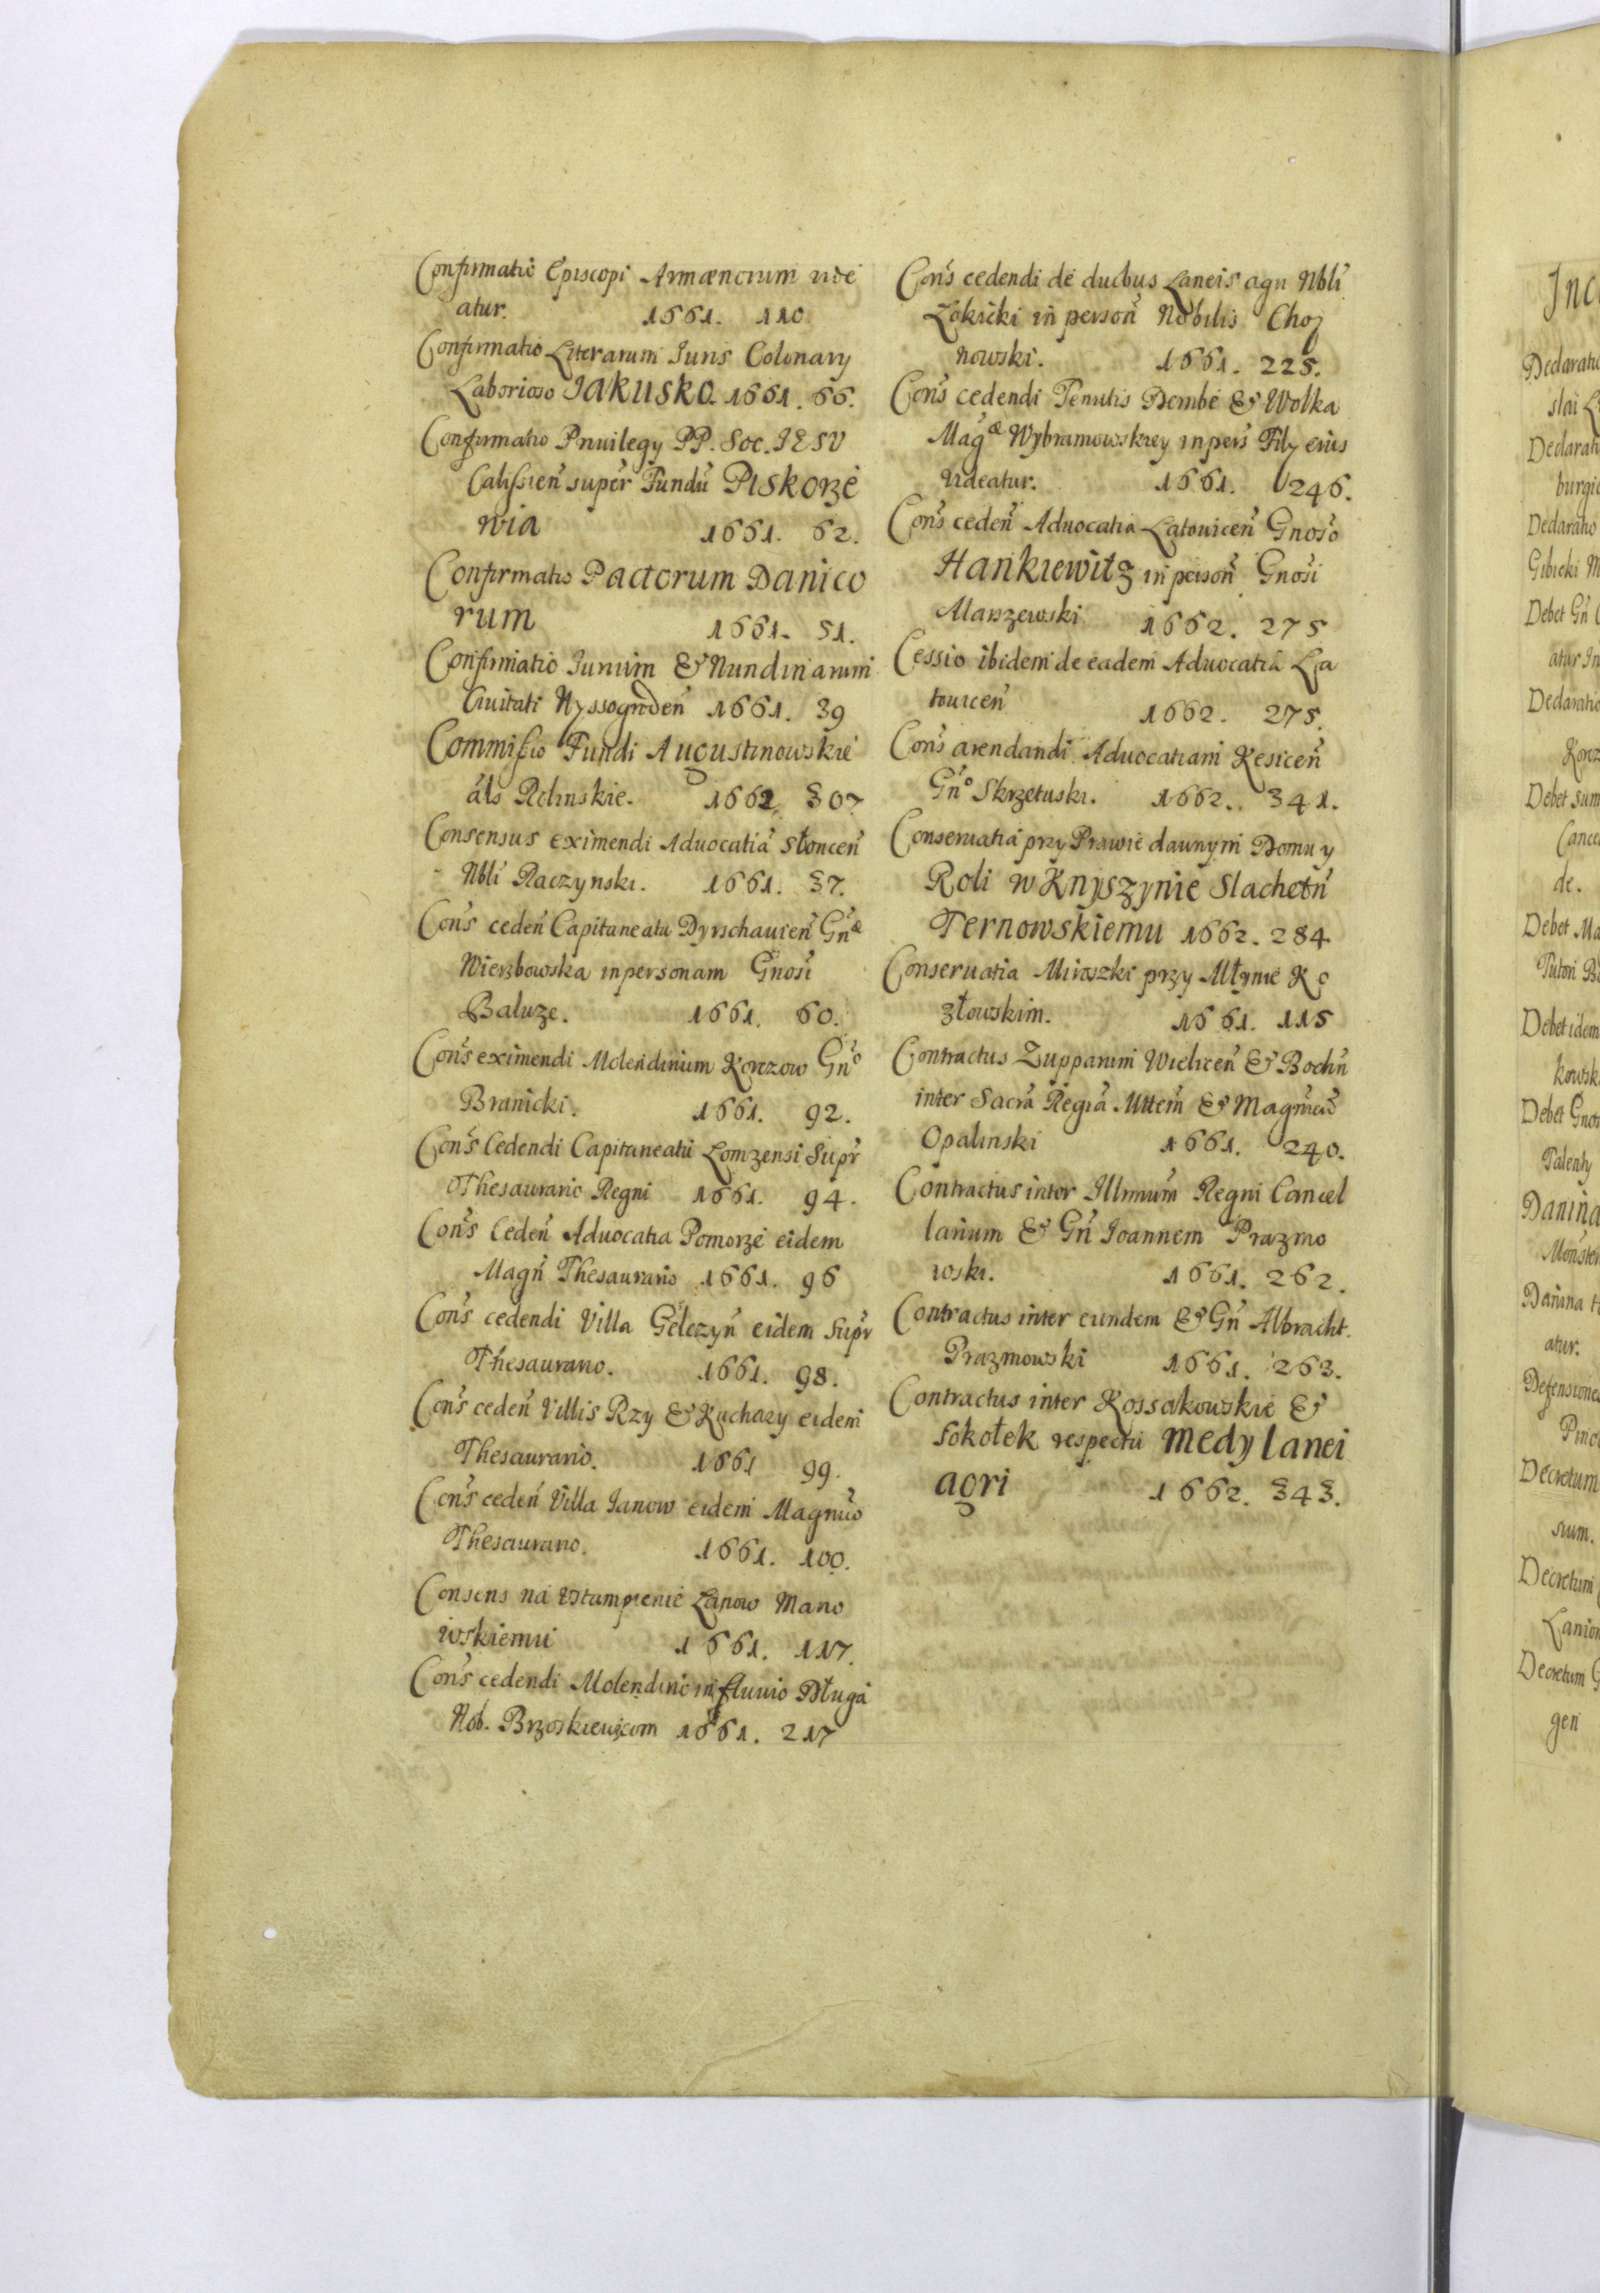 Confirmatio Episcopi Armænorum vide
atur. 1661. 110
Confirmatio Literarum Iuris Colonary
Laborioso IAKUSKO. 1661. 66.
Confirmatio Priuilegy PP. Soc. IESV
Calissień super Fundũ Piskorze
wia 1661. 62.
Confirmatio Pactorum Danico
rum 1661. 51.
Confirmatio Iurium & Nundinarum
Ciuitati Wyssogrodeń 1661. 39
Commissio Fundi Augustinowskie
als Rolinskie. 1662 307
Consensus eximendi Aduocatiã Słonceń
Nbli Raczynski. 1661. 37.
Cons cedeń Capitaneatu Dyrschauień Gnæ
Wierzbowska in personam Gnosi
Baluze. 1661. 60.
Cons eximendi Molendinum Korczow Gno
Branicki. 1661. 92.
Cons Cedendi Capitaneatu Lomzensi Supr
Thesaurario Regni 1661. 94.
Cons Cedeń Aduocatia Pomorze eidem
Magń Thesaurario 1661. 96
Cons cedendi Villa Gelczyń eidem Supr
Thesaurario. 1661. 98.
Cons cedeń Villis Rzy & Kuchary eidem
Thesaurario. 1661 99.
Cons cedeń Villa Ianow eidem Magnco
Thesaurario. 1661. 100.
Consens na Vstampienie Łanow Mano
wskiemu 1661. 117.
Cons cedendi Molendino in fluuio Długa
Nob. Brzoskiewicom 1661. 217
Cons cedendi de duobus Laneis agri Nbli
Zokicki in personã Nobilis Choj
nowski. 1661. 225.
Cons cedendi Tenutis Dembe & Wolka
Magæ Wybramowskiey in pers Fily eius
videatur. 1661. 246.
Cons cedeń Aduocatia Latouiceń Gnoso
Hankiewitz in persoń Gnosi
Marszewski 1662. 275
Cessio ibidem de eadem Aduocatia La
touiceń 1662. 275.
Cons arendandi Aduocatiam Kesiceń
Gno Skrzetuski. 1662. 341.
Conseruatia przy Prawie dawnym Domu y
Roli w Knyszynie Slachetń
Ternowskiemu 1662. 284
Conseruatia Miroszki przy Młynie Ko
złowskim. 1661. 115
Contractus Zupparum Wieliceń & Bochń
inter Sacrã Regiã Mttem & Magnicũ
Opalinski 1661. 240.
Contractus inter Illmum Regni Cancel
larium & Gń Ioannem Prazmo
wski. 1661. 262.
Contractus inter eundem & Gń Albracht.
Prazmowski 1661. 263.
Contractus inter Kossakowskie &
Sokołek respectu Medy Lanei
agri 1662. 343.
Declaratio
slai
Declarat
Declaratio
Gibicki
Debet Gń
atur In
Declaratio
Debet Sum
de.
Debet Ma
Tutori
Debet idem
kowsk
Debet Gnos
Talenty
Danina
Monster
Danina
atur.
Defensione
Decretum
sum.
Decretum
Decretum
gen